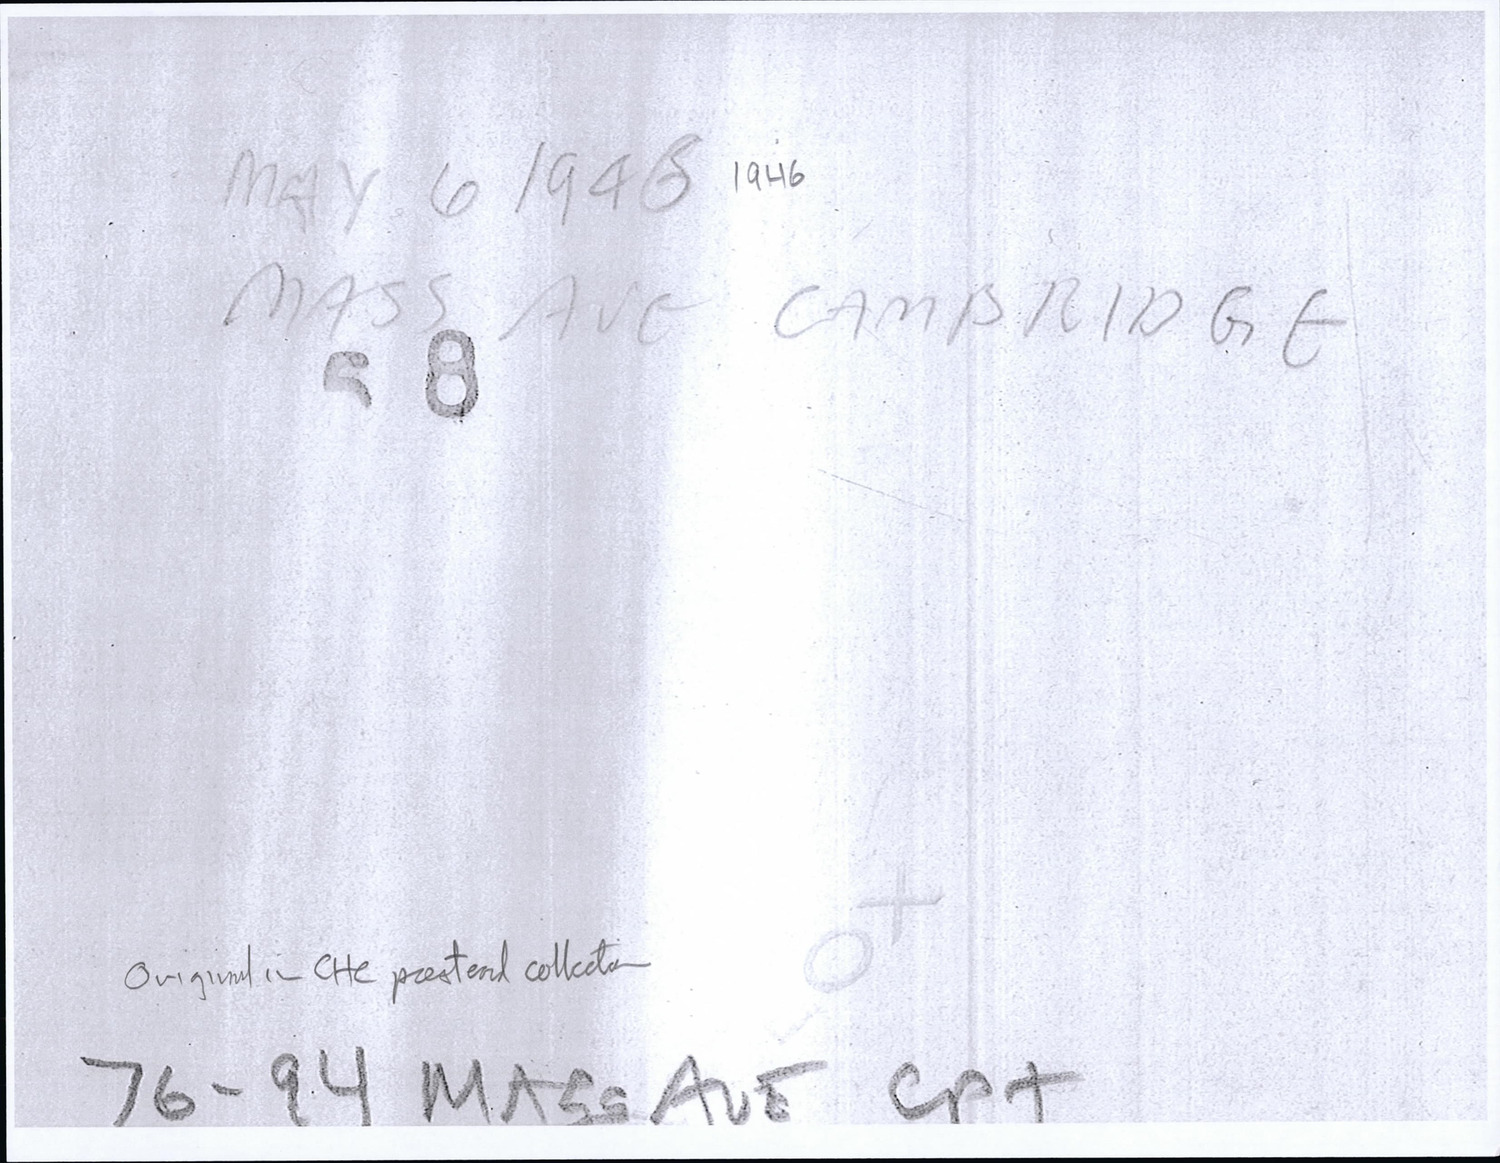 MAY 6 1946 1946
MASS AVE CAMBRIDGE
58
O+
Original in CHC postcard collection
76-94 MASS AVE CPT